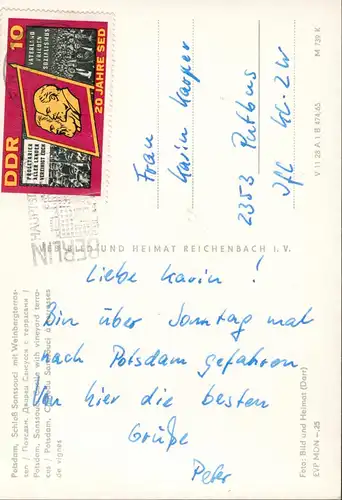 10
VATERLAND
FRIEDEN
SOZIALISMUS
PROLETARIER
ALLER LÄNDER
VEREINIGT EUCH
20 JAHRE SED
DDR
BERLIN
M 739 K
V 11 28 A 1 B 474/65
Frau
Karin Karper
2353 Putbus
BILD UND HEIMAT REICHENBACH I. V.
Liebe Karin!
Bin über Sonntag mal
nach Potsdam gefahren
Von hier die besten
Grüße
Peter
Potsdam, Schloß Sanssouci mit Weinbergterras-
sen / Потсдам. Дворец Сансуси с террасами /
Potsdam, Sanssouci with vineyard terra-
ces / Potsdam, Château Sanssouci à terrasses
de vignes
Foto: Bild und Heimat (Darr)
EVP MDN –,25